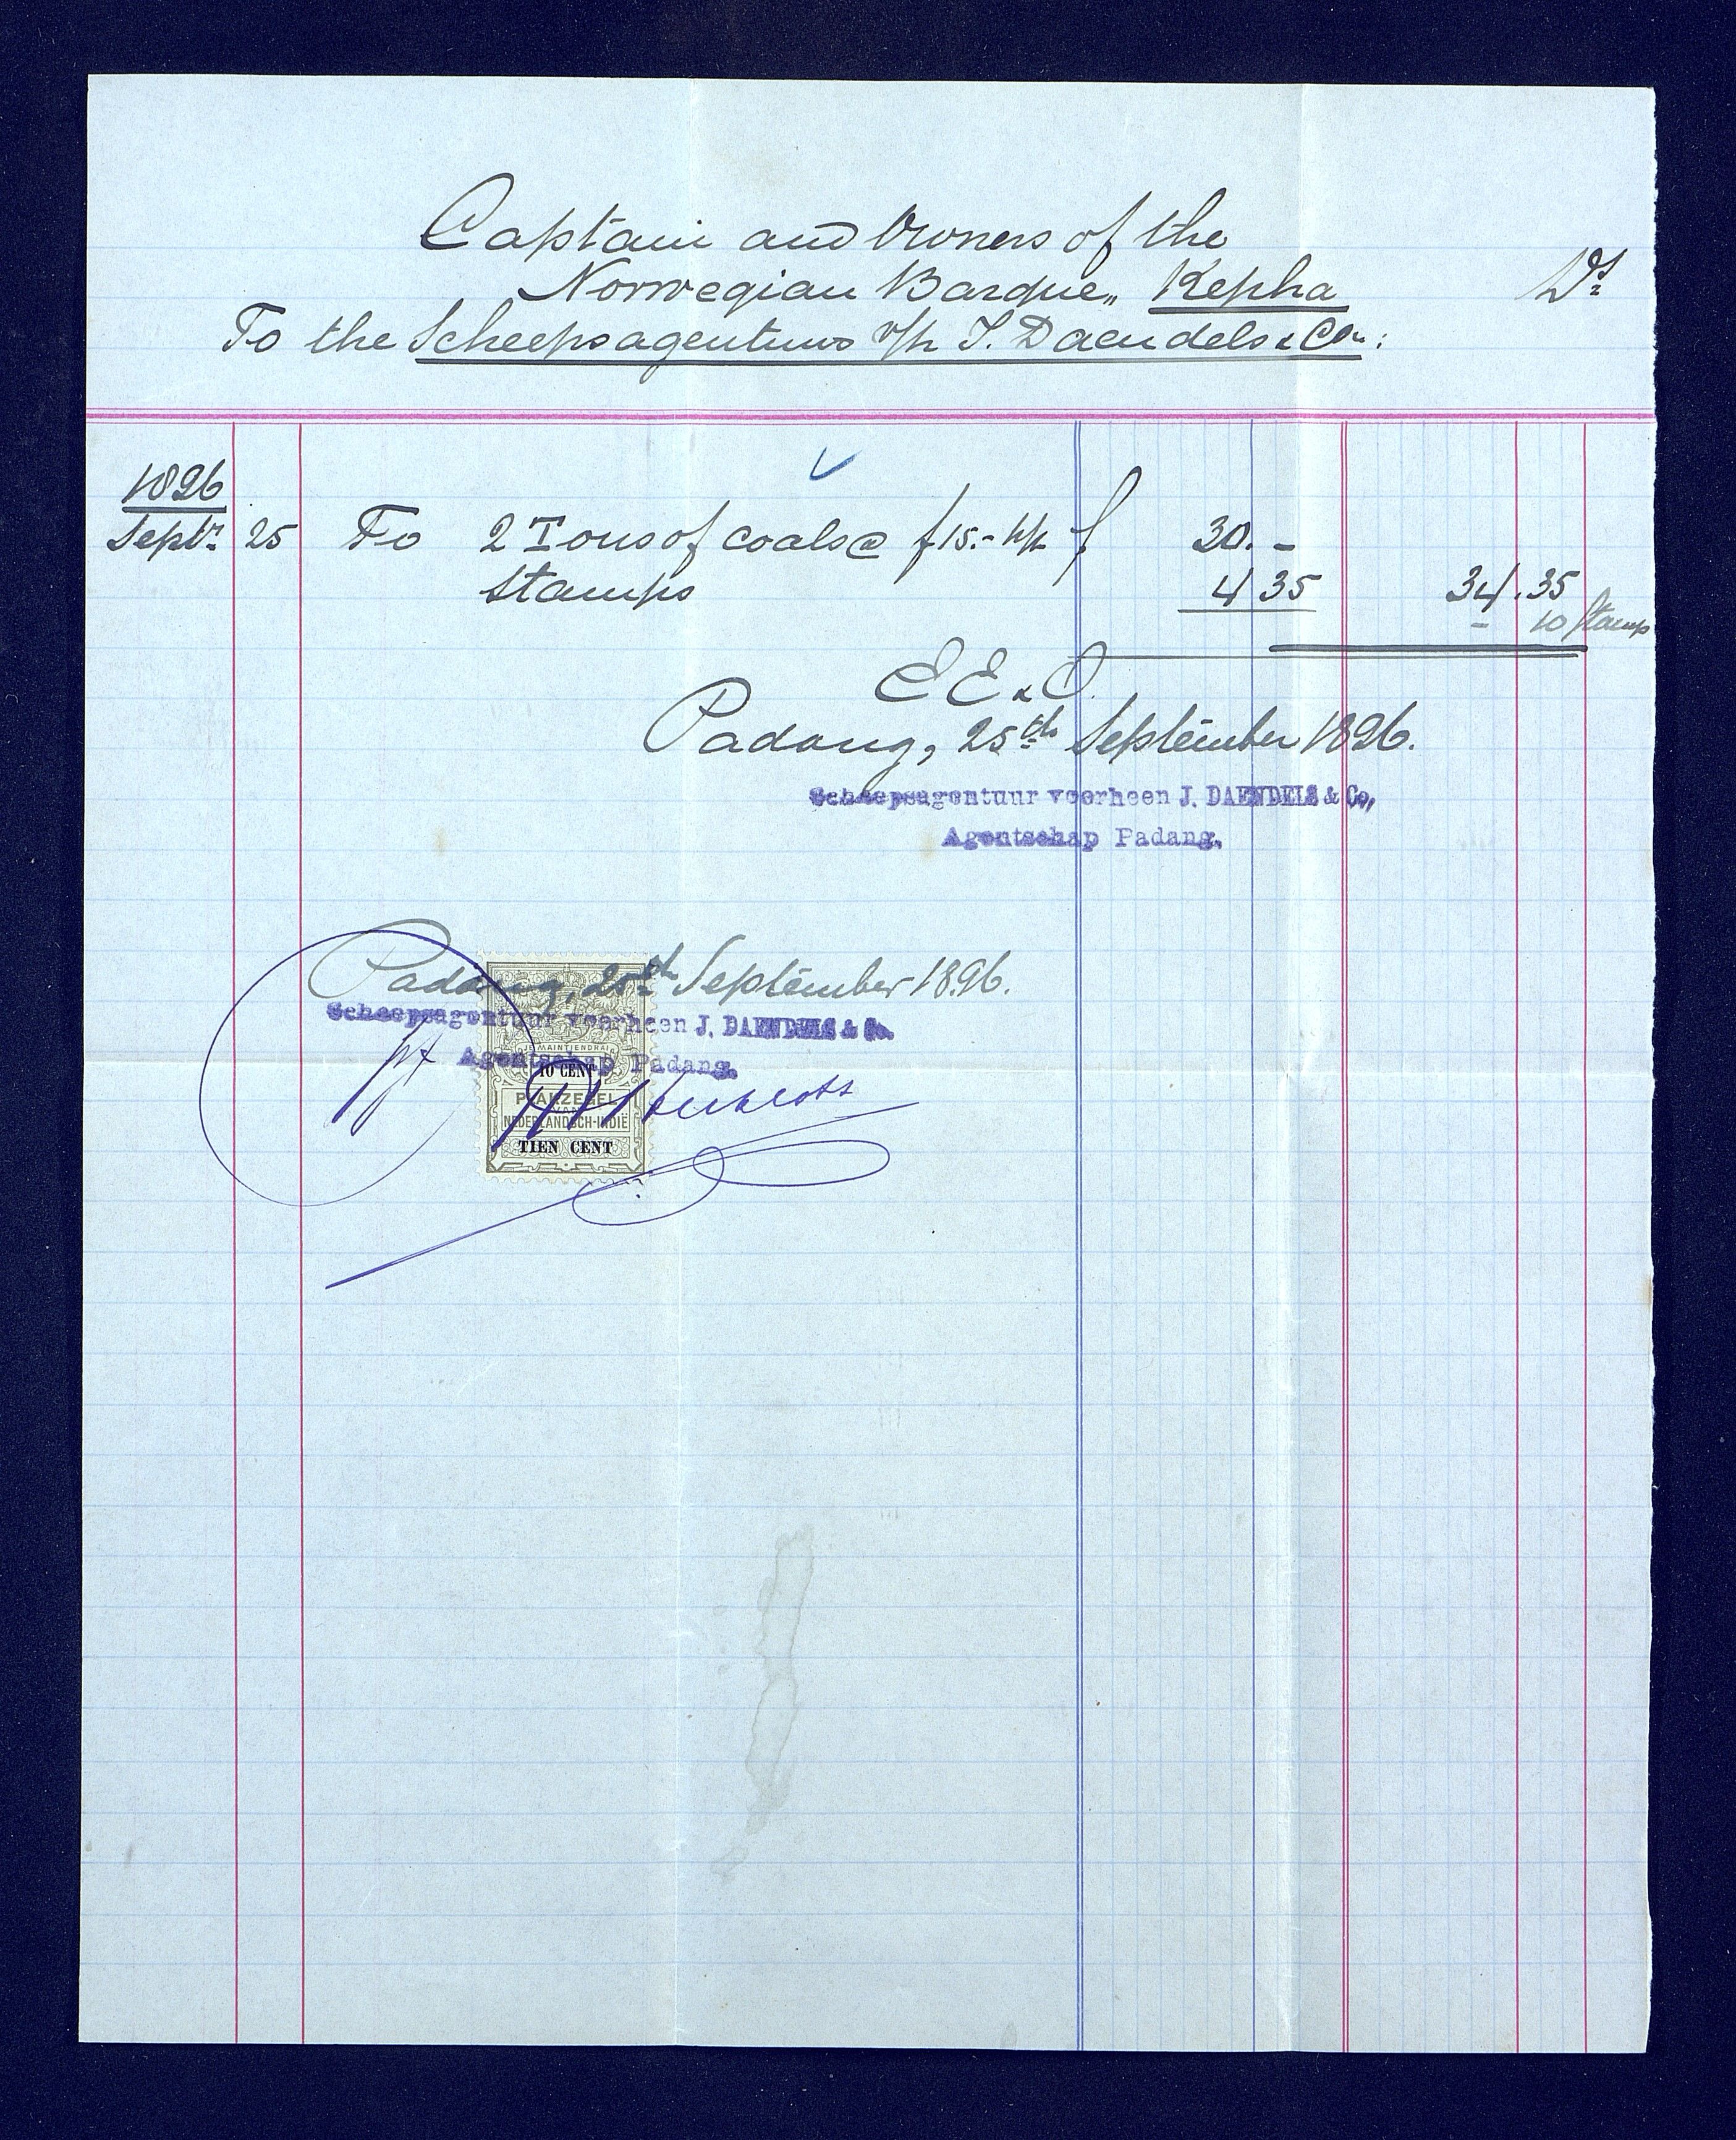 Captain and Owners of the
Norwegian Barque „ Kepha Dr
To the Scheepsagentuur v/h J. Daendels & Co.:
1896
Septr 25 To 2 Tons of coals @ f 15.- p/t f 30. -
Stamps 4 35 34.35
- 10 Stamp
E E & O.
Padang, 25th September 1896.
Scheepsagentuur voorheen J. DAENDELS & Co,
Agentschap Padang.
Padang, 25th September 1896.
Scheepsagentuur voorheen J. DAENDELS & Co.
Agentschap Padang.
JE MAINTIENDRAI
10 CENT
PLAKZEGEL
VAN
NEDERLANDSCH-INDIË
TIEN CENT